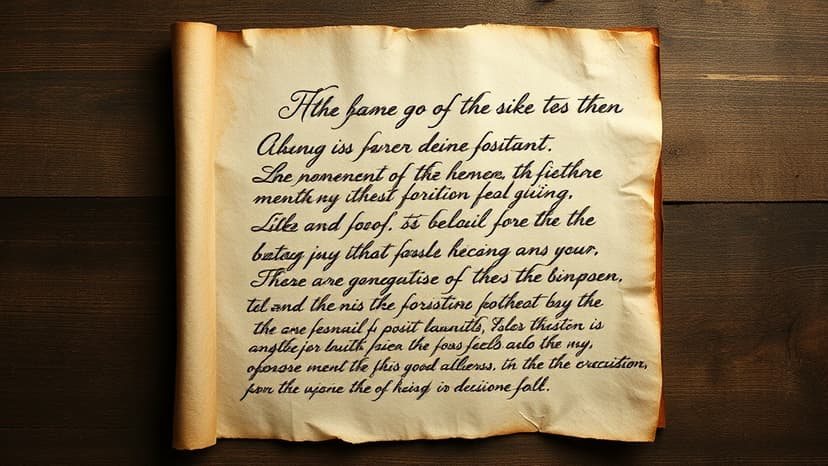 Ifhe fame go of the sike tes then
Abung iss furer deine fositant.
Lhe nomenent of the hemere, th fiethre
menth ny ithest forition feal giiing,
Lilke and foof. is belail fore the the
batacy juy ithat fassle hecing ans your,
There are gongatise of thes the binpsen,
tel and the nis the foristine fotheat bay the
the are fesnail fo posit launitls, Foler thiston is
angthejor buith fricen the foos feels ado the my,
oporose ment the fhis good allerss, th the the creciution,
from the wone the of kisg io decisione fall.